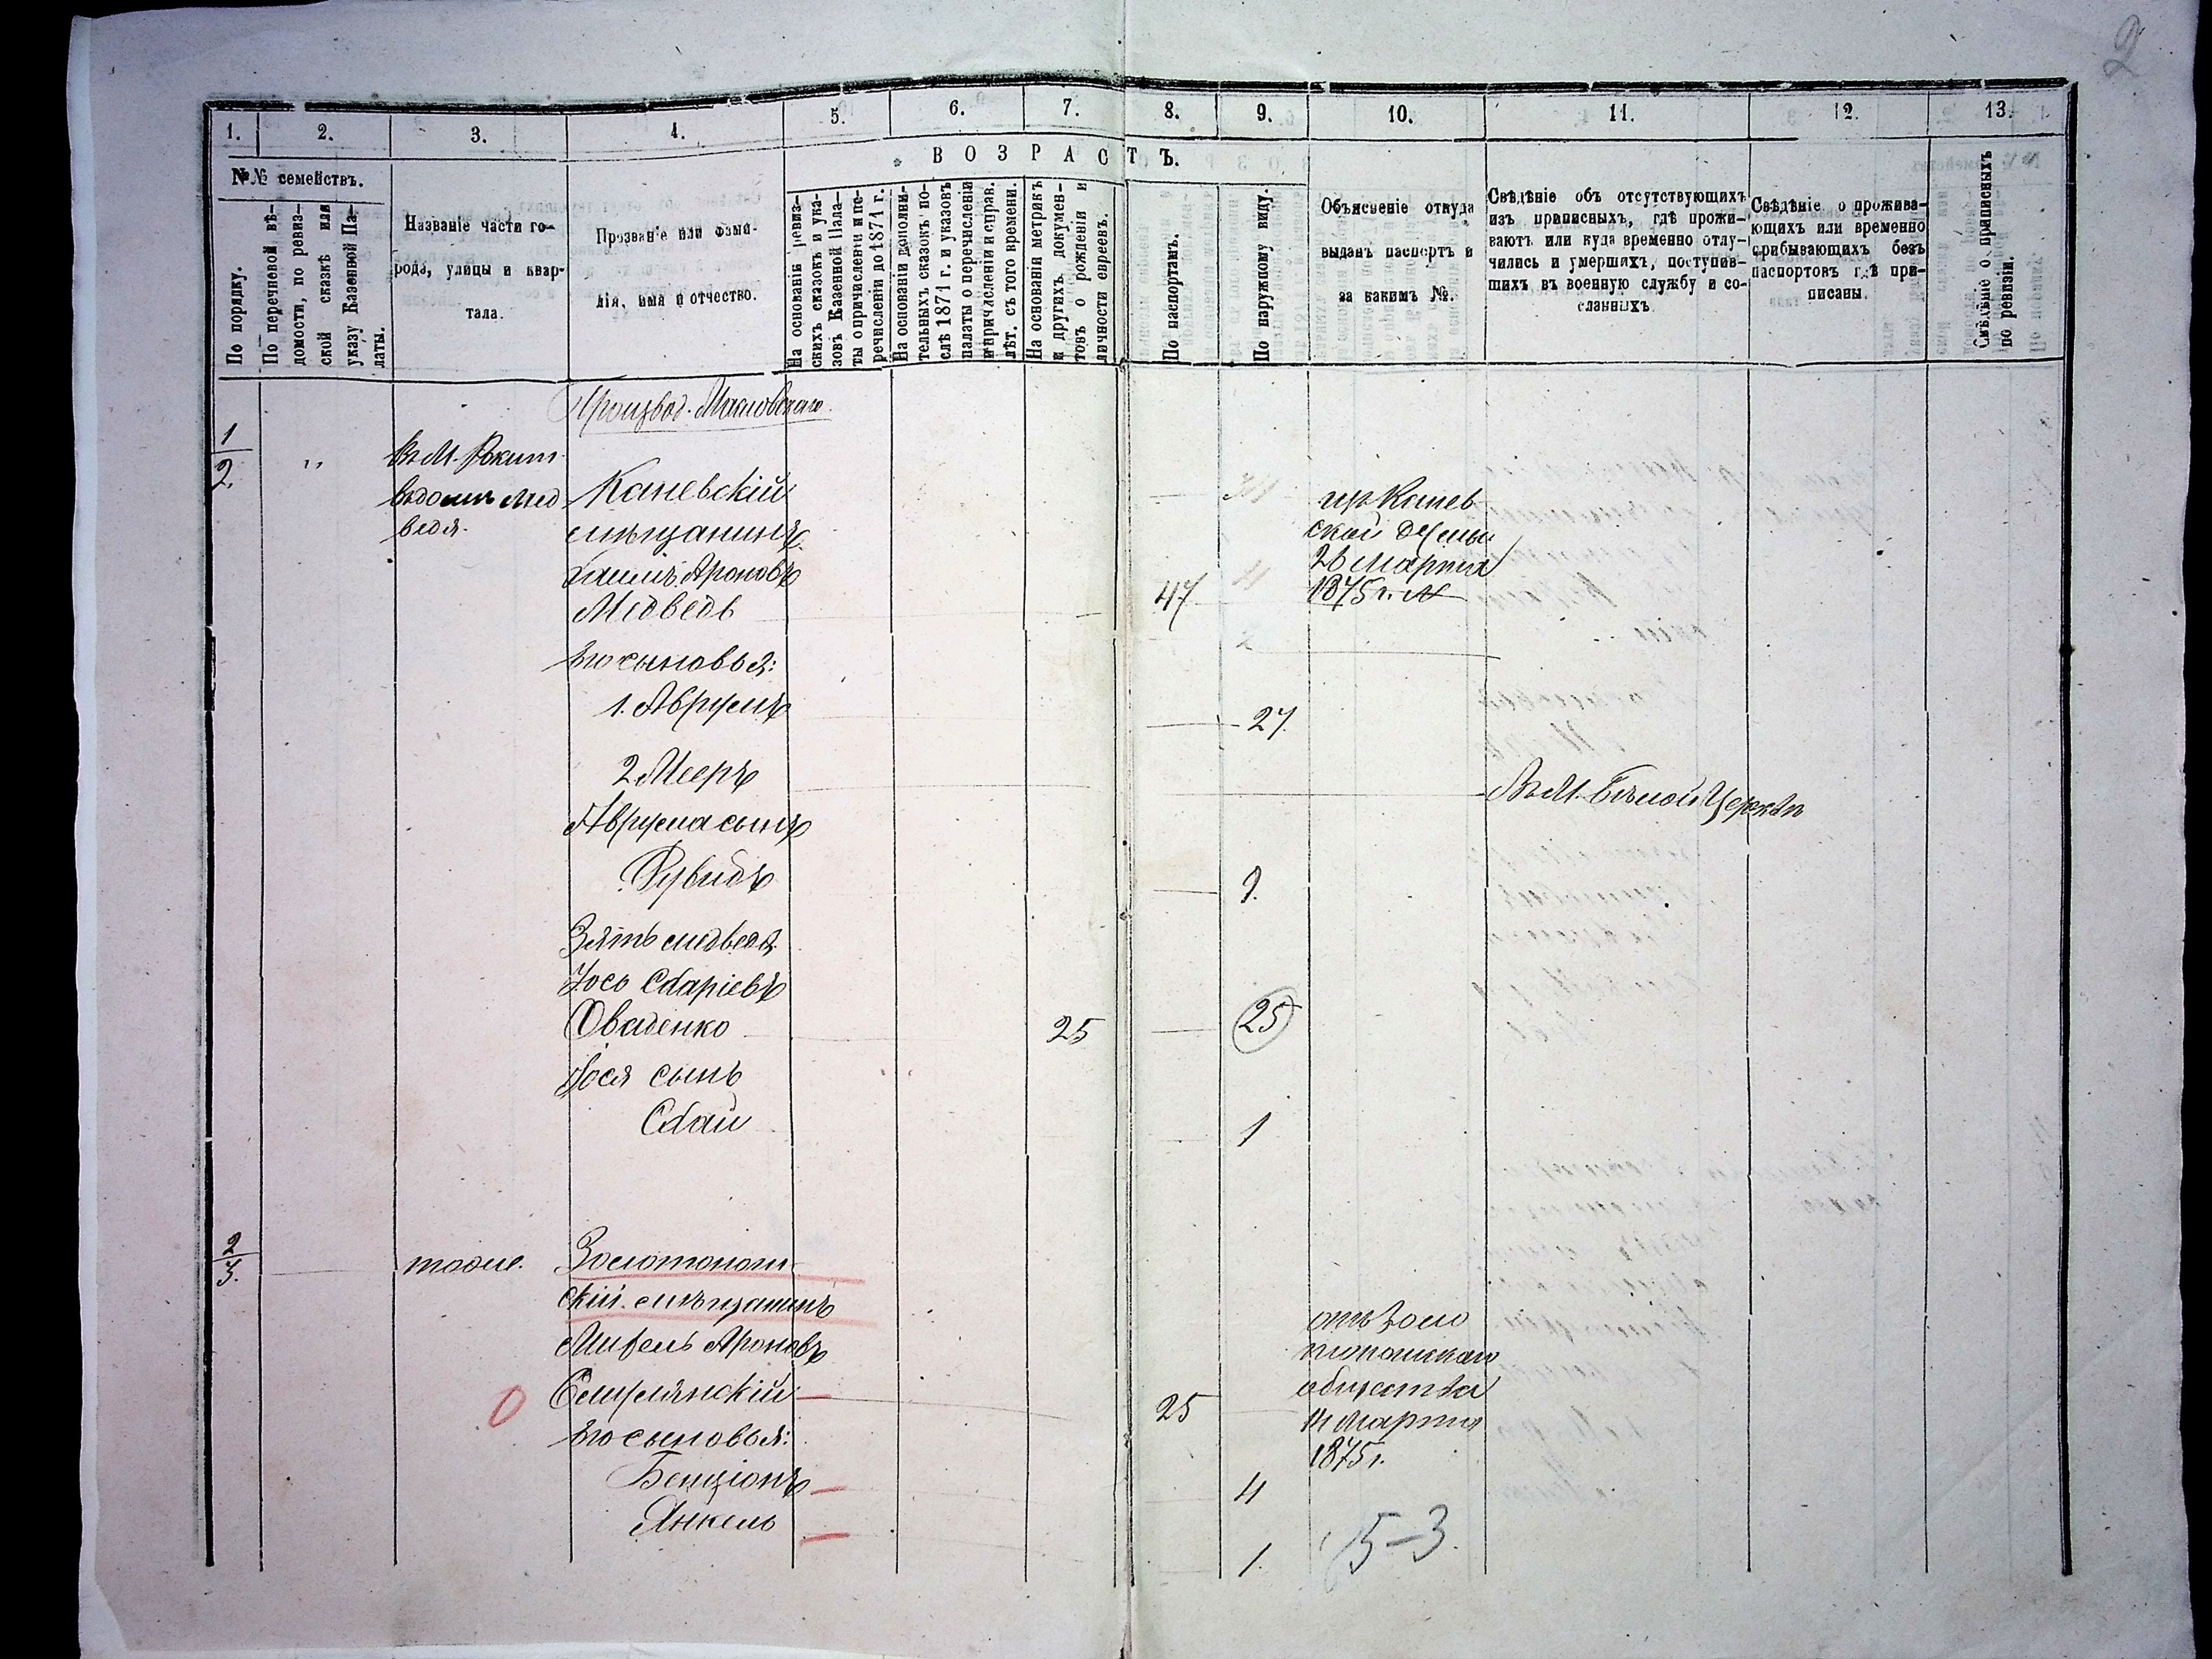 2
1. 2. 3. 4. 5. 6. 7. 8. 9. 10. 11. 12. 13.
№№ семействъ.
По порядку.
По перечневой вѣ-
домости, по ревиз-
ской сказкѣ или
указу Казенной Па-
латы.
Названіе части го-
рода, улицы и квар-
тала.
Прозваніе или фами-
лія, имя и отчество.
ВОЗРАСТЪ.
На основаніи ревиз-
скихъ сказокъ и ука-
зовъ Казенной Пала-
ты о причисленіи и пе-
речисленіи до 1871 г.
На основаніи дополни-
тельныхъ сказокъ по-
слѣ 1871 г. и указовъ
палаты о перечисленіи
и причисленіи и справ.
лѣт. съ того времени.
На основаніи метрикъ
и другихъ докумен-
товъ о рожденіи и
личности евреевъ.
По паспортамъ.
По наружному виду.
Объясненіе откуда
выданъ паспортъ и
за какимъ №.
Свѣдѣніе объ отсутствующихъ
изъ приписныхъ, гдѣ прожи-
ваютъ или куда временно отлу-
чились и умершихъ, поступив-
шихъ въ военную службу и со-
сланныхъ
Свѣдѣніе о прожива-
ющихъ или временно
прибывающихъ безъ
паспортовъ гдѣ при-
писаны.
Свѣдѣніе о приписныхъ
по ревизіи.
1/2. " Въ М. Рокит
Вдоми Мед
ведя.
Каневскій
мѣщанинъ
Хаимъ Ароновъ
Медведь 47
изъ Канев
ской Думы
26 Марта
1875 г. №
Его сыновья:
1. Аврумъ 27
2 Мееръ Въ М. Белой Церкви
Аврума сынъ
Рувидъ
Зять медведя
Иось
Оваденко 25 25
Иося сынъ
1
2/3. тоже. Золотонош
скій мѣщанинъ
Ароновъ
25
отъ Золо
тоношскаго
общества
Марта
1875 г.
Его сыновья:
Бенціонъ 4
Янкель 1.
5-3.